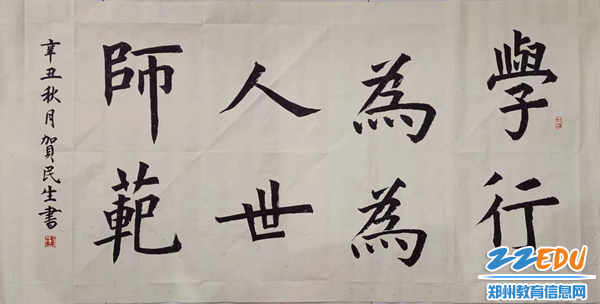 學為人師
行為世範
辛丑秋月賀民生書
ZZEDU
郑州教育信息网